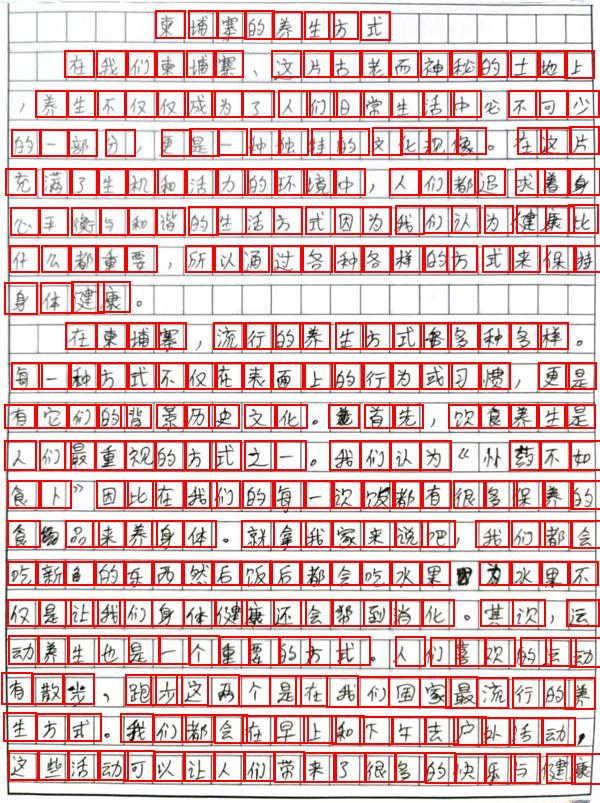 柬埔寨的养生方式
在我们柬埔寨、这片古老而神秘的土地上
，养生不仅仅成为了人们日常生活中必不可少
的一部分，更是一种独特的文化现像。在这片
充满了生机和活力的环境中，人们都追求着身
心平衡与和谐的生活方式因为我们认为健康比
什么都重要，所以通过各种各样的方式来保持
身体健康。
在柬埔寨，流行的养生方式多种多样。
每一种方式不仅在表面上的行为或习惯，更是
有它们的背景历史文化。首先，饮食养生是
人们最重视的方式之一。我们认为《补药不如
食卜》因比在我们的每一次饭都有很多保养的
食品来养身体。就拿我家来说吧，我们都会
吃新鱼的东西然后饭后都会吃水果因为水果不
仅是让我们身体健康还会帮到消化。其次，运
动养生也是一个重要的方式。人们喜欢的运动
有散步、跑步这两个是在我们国家最流行的养
生方式。我们都会在早上和下午去户外活动，
这些活动可以让人们带来了很多的快乐与健康